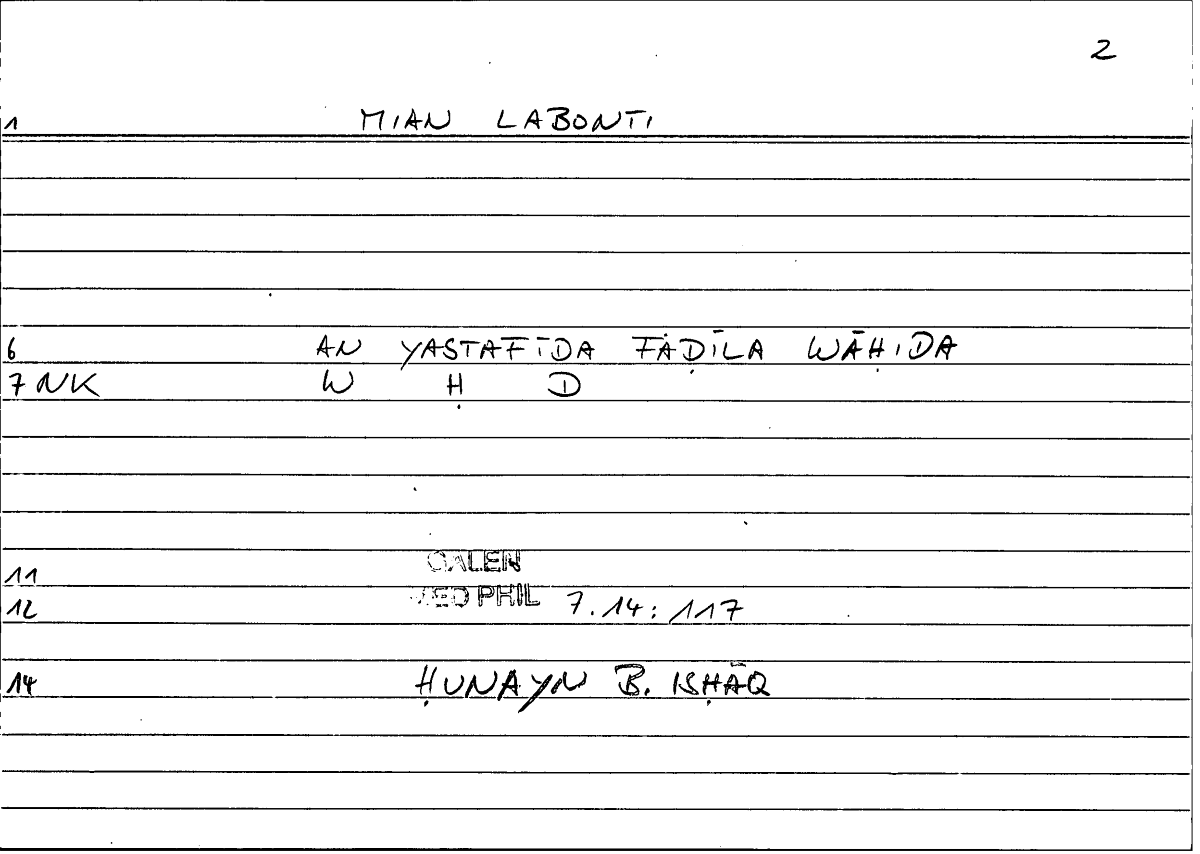 2
1 MIAN LABONTI
6 AN YASTAFĪDA FĀḌĪLA WĀḤIDA
7 NK W Ḥ D
11 GALEN
12 MED PHIL 7.14: 117
14 ḤUNAYN B. ISḤĀQ